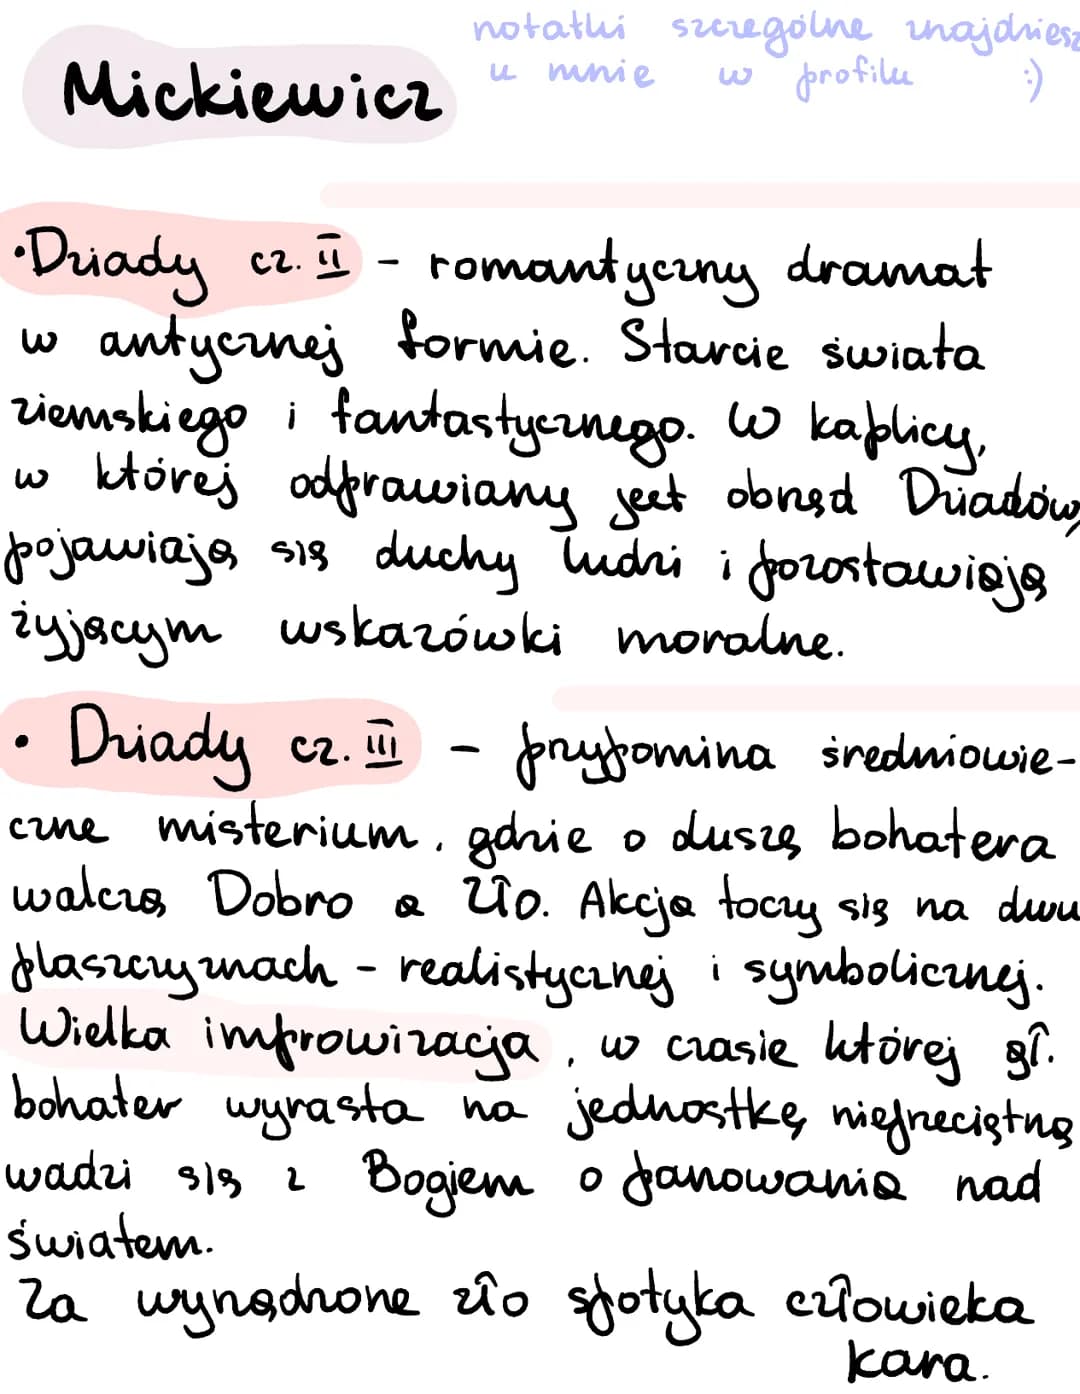 notatki szczególne znajdziesz
u mnie w profilu :)
Mickiewicz
•Dziady cz. II - romantyczny dramat
w antycznej formie. Starcie świata
ziemskiego i fantastycznego. W kaplicy,
w której odprawiany jest obrzęd Dziadów,
pojawiają się duchy ludzi i pozostawiają
żyjącym wskazówki moralne.
• Dziady cz. III - przypomina średniowie-
czne misterium, gdzie o duszę bohatera
walczą Dobro a Zło. Akcja toczy się na dwu
płaszczyznach - realistycznej i symbolicznej.
Wielka improwizacja, w czasie której gł.
bohater wyrasta na jednostkę nieprzeciętną
wadzi się z Bogiem o panowania nad
światem.
Za wyrządzone zło spotyka człowieka
kara.